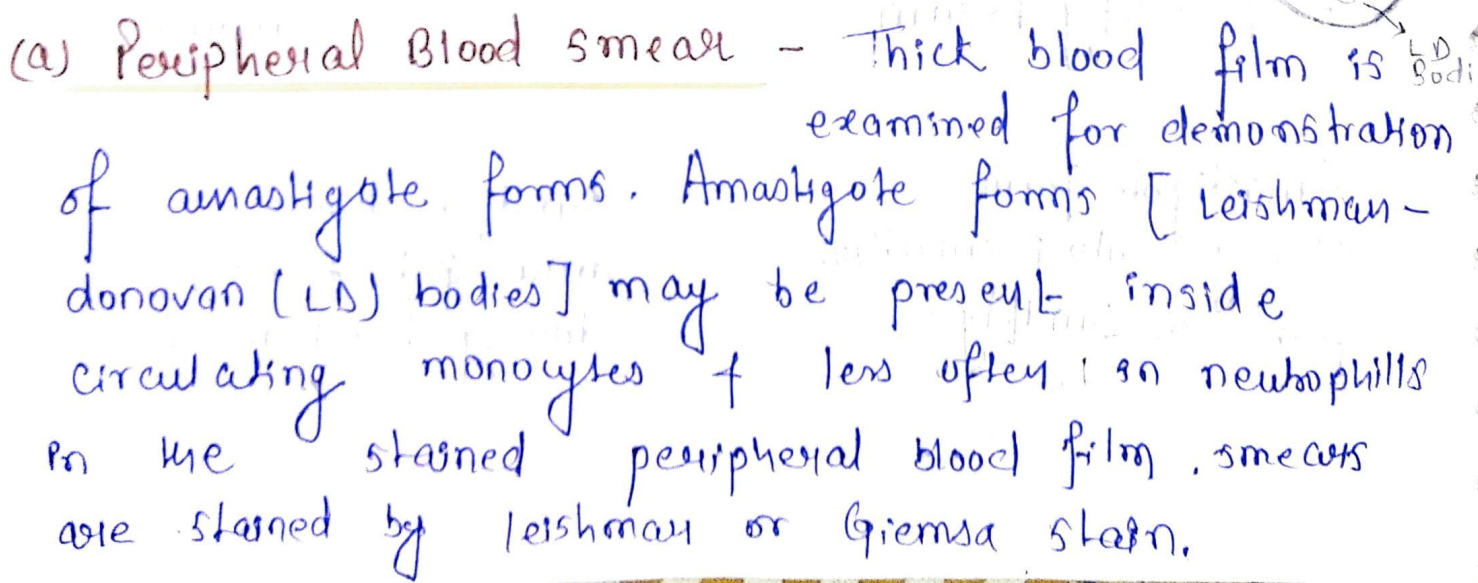 (a) Peripheral Blood smear - Thick blood film is
LD
Bodi
examined for demonstration
of amastigote forms. Amastigote forms [ Leishman-
donovan (LD) bodies] may be present inside
circulating monocytes + less often in neutrophills
in the stained peripheral blood film. smears
are stained by leishman or Giemsa stain.